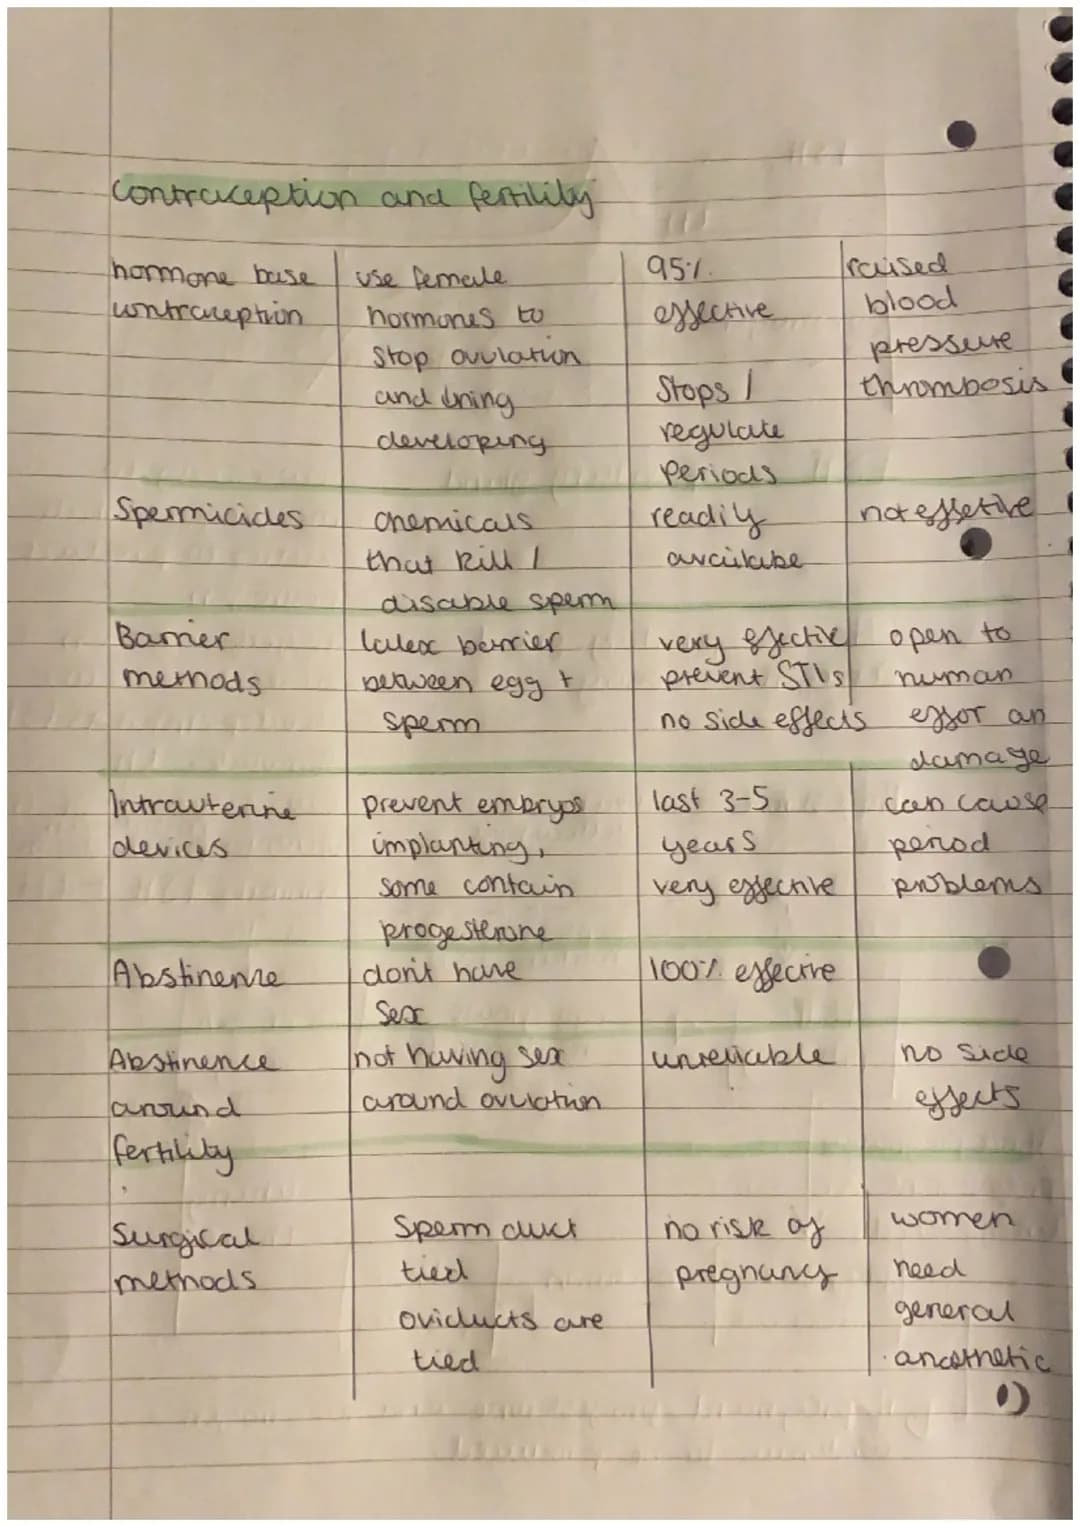 Contraception and fertility
hormone base | use female | 95% | raised
contraception | hormones to | effective | blood
stop ovulation | pressure
and lining | Stops / | thrombosis
developing | regulate
periods
Spermicides | chemicals | readily | not effetive
that kill / | availabe
disable sperm
Barrier | latex barrier | very effective | open to
methods | between egg + | prevent STIs | human
sperm | no side effects | error an
damage
Intrauterine | prevent embryos | last 3-5 | can cause
devices | implanting, | years | period
some contain | very effective | problems
progesterone
Abstinence | don't have | 100% effecive
sex
Abstinence | not having sex | unreliable | no side
around | around ovulation | effects
fertility
Surgical | Sperm duct | no risk of | women
methods | tied | pregnancy | need
oviducts are | general
tied | anasthetic